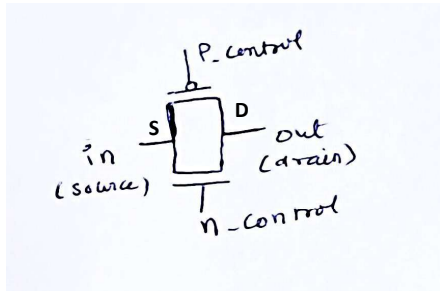 P_control
S
D
in
(source)
out
(drain)
n_control